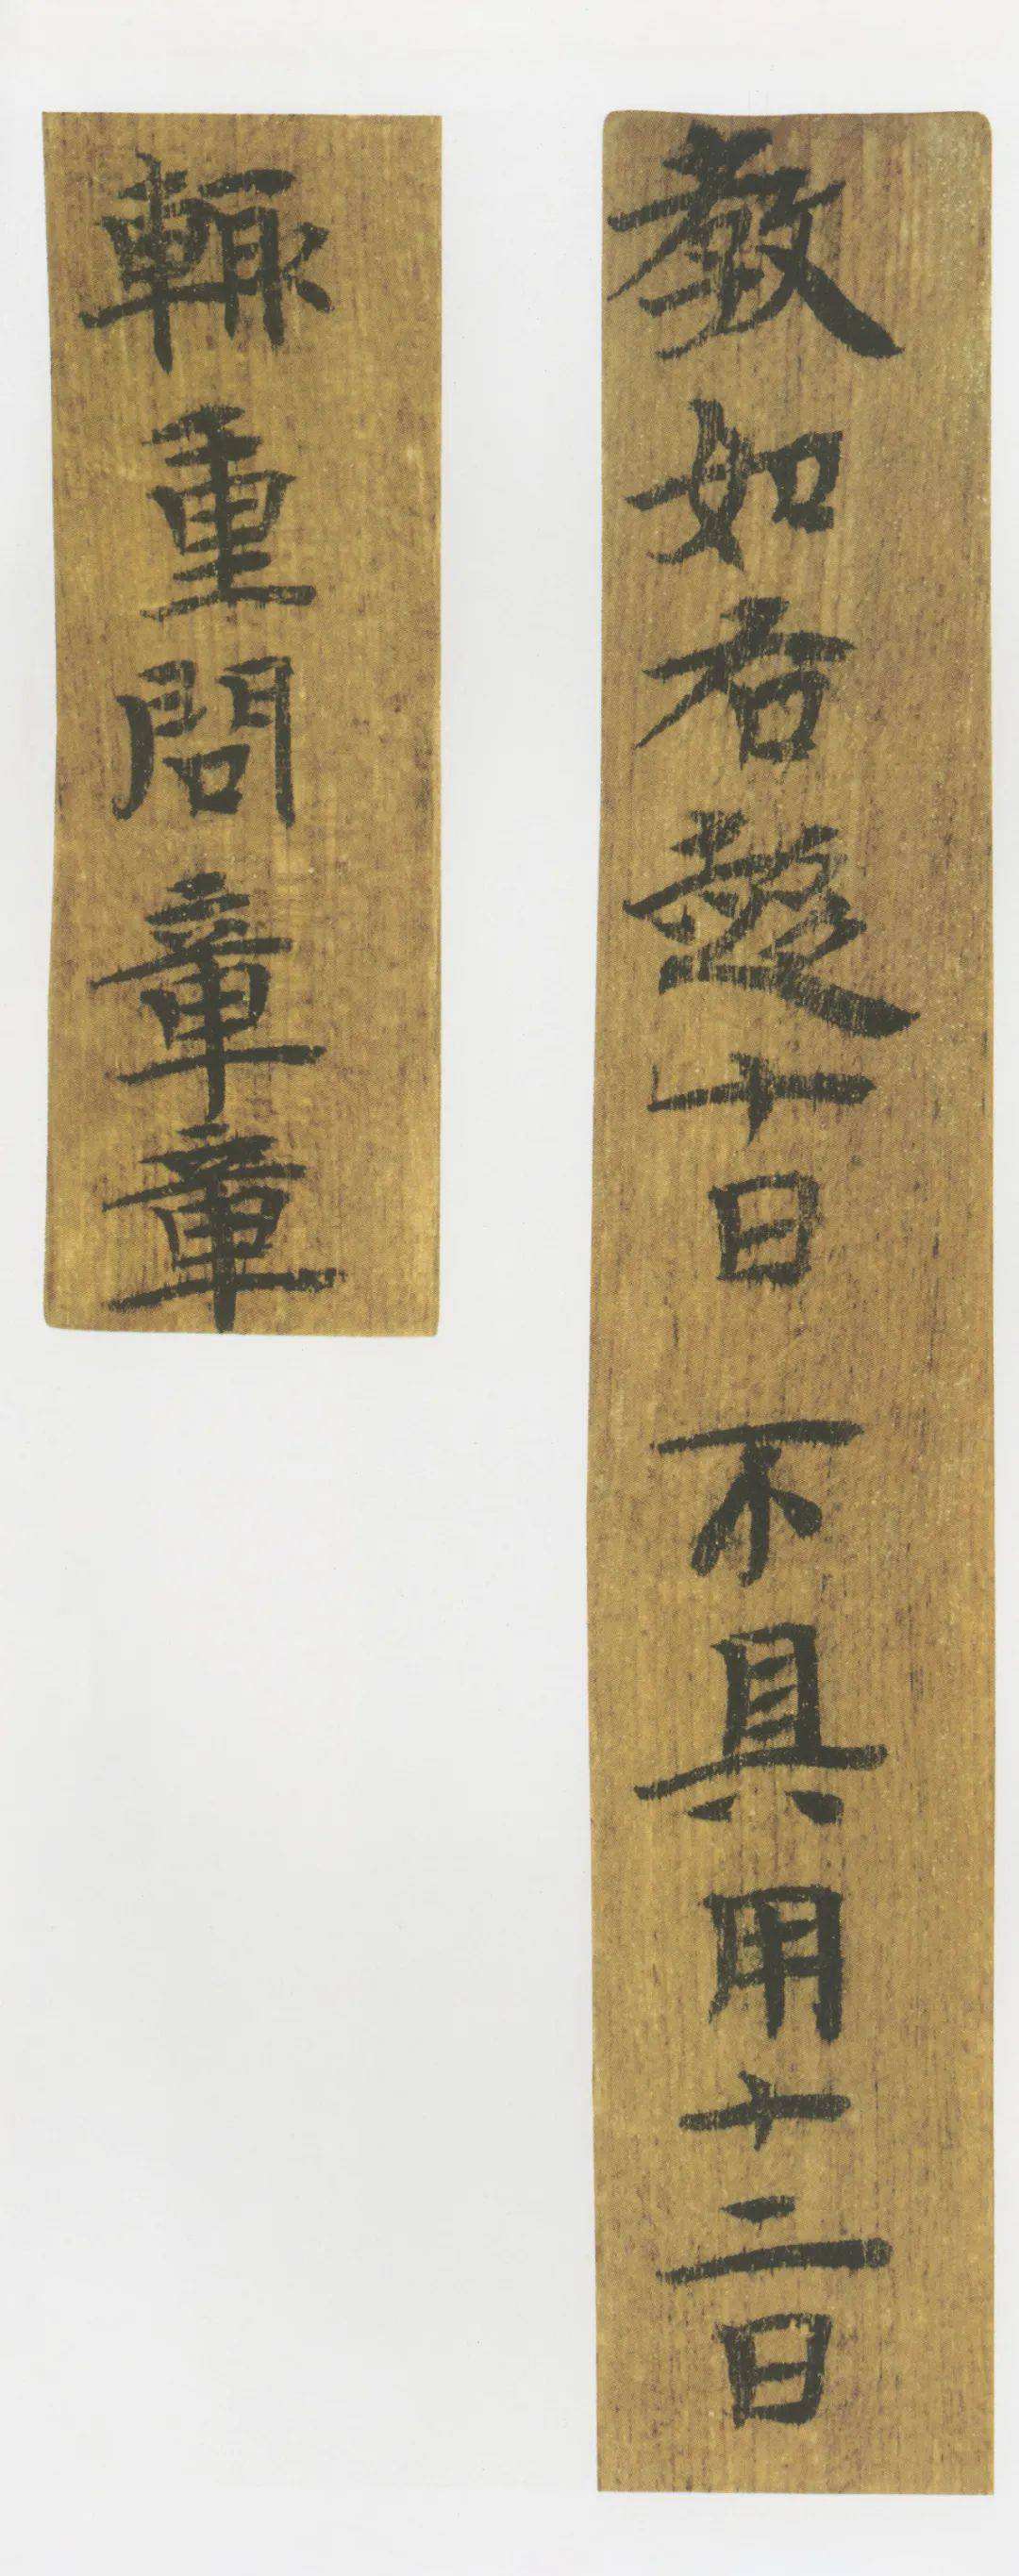 教如右十日 不具用十二日
輙重問章章